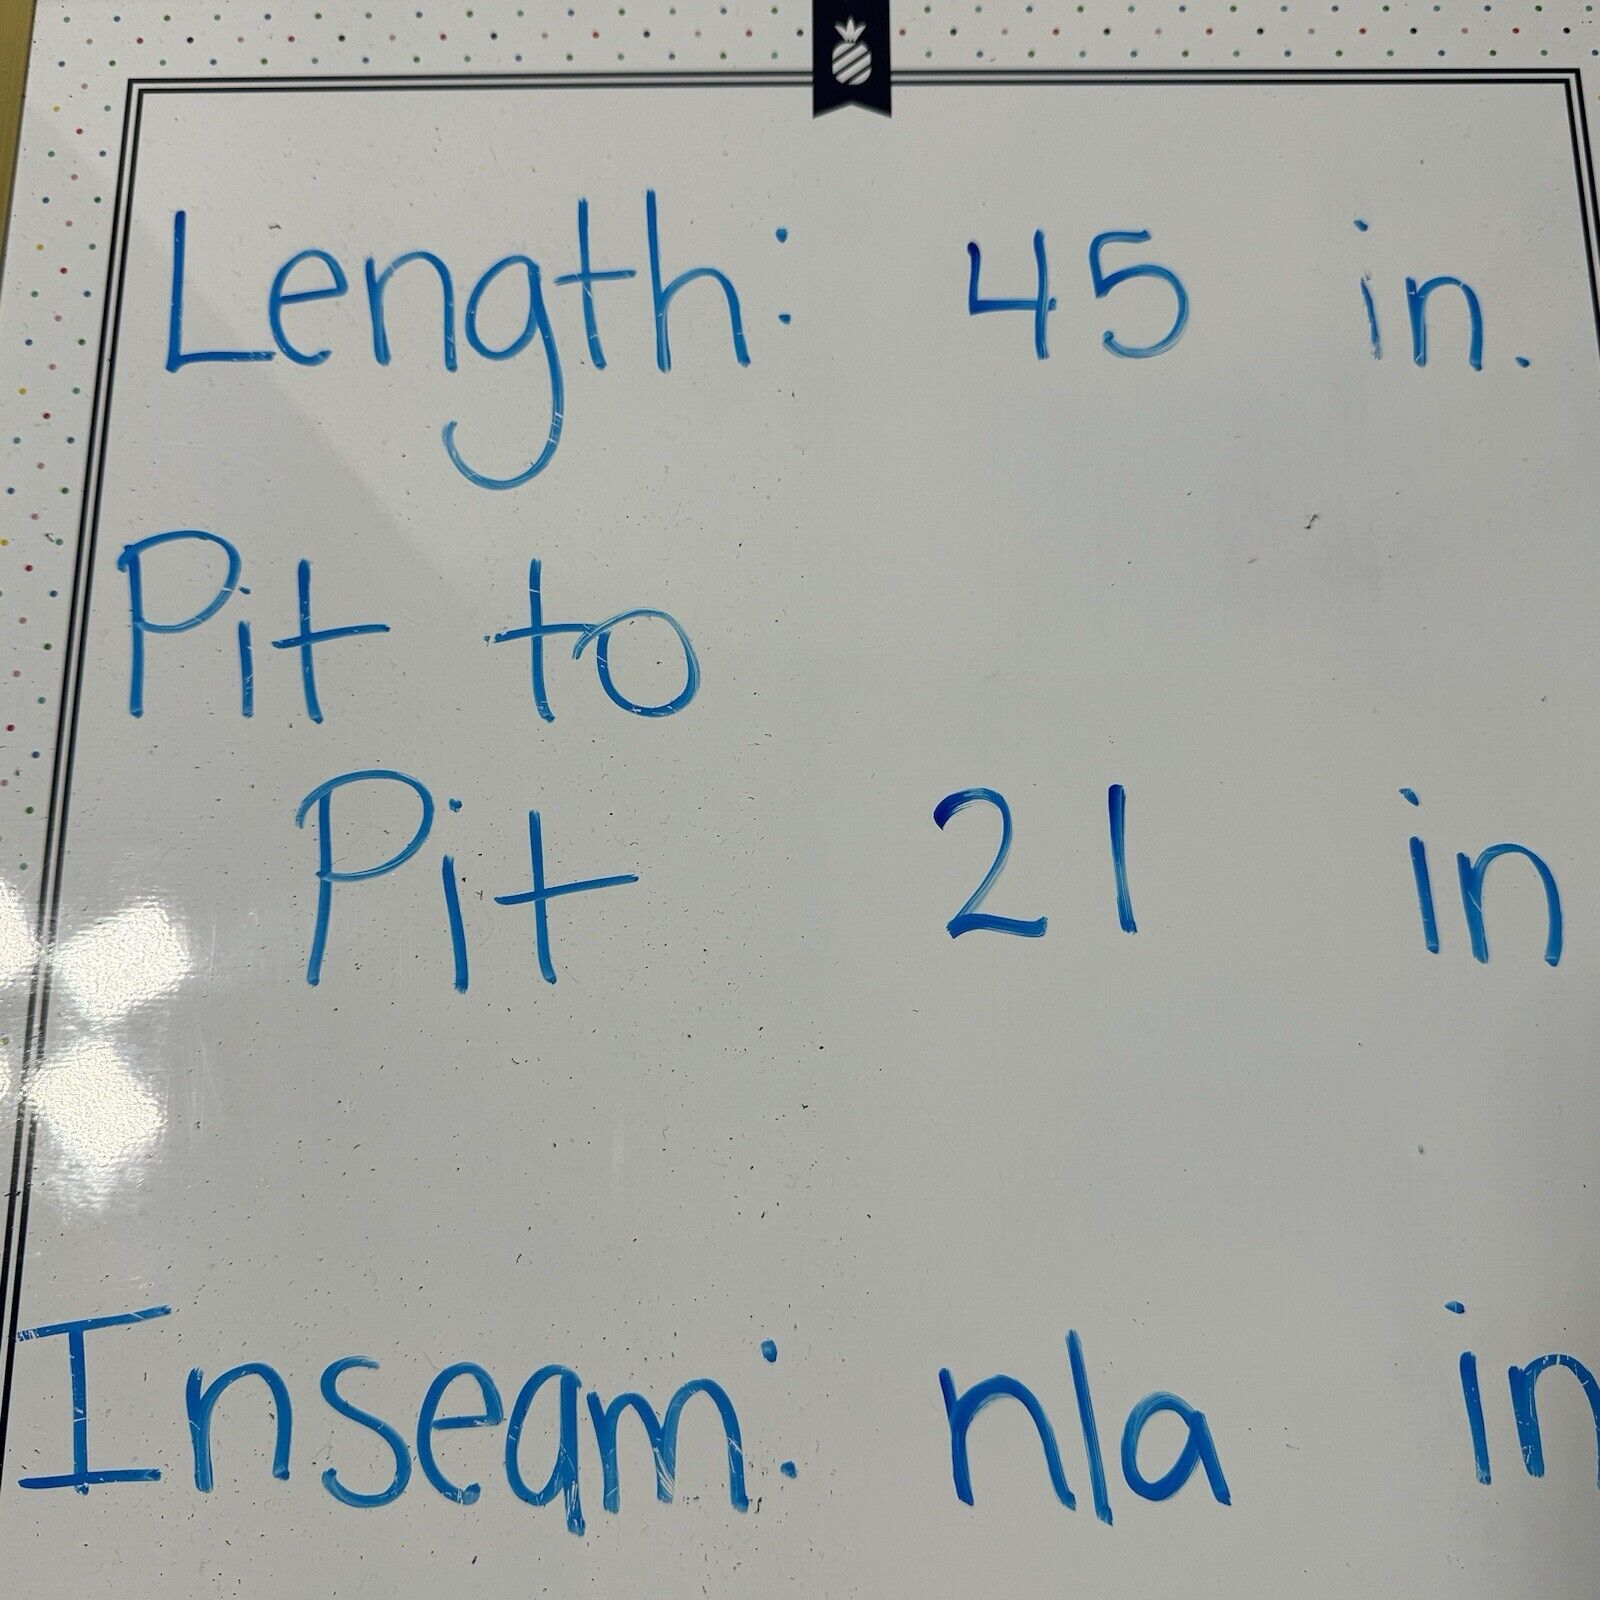 Length: 45 in.
Pit to
Pit 21 in
Inseam: n/a in